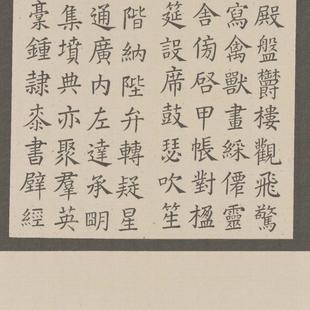 殿盤欝樓觀飛驚
寫禽獸畫綵僊靈
舎傍启甲帳對楹
筵設席鼓瑟吹笙
階納陛弁轉疑星
通廣内左達承明
集墳典亦聚羣英
稾鍾隷桼書壁經